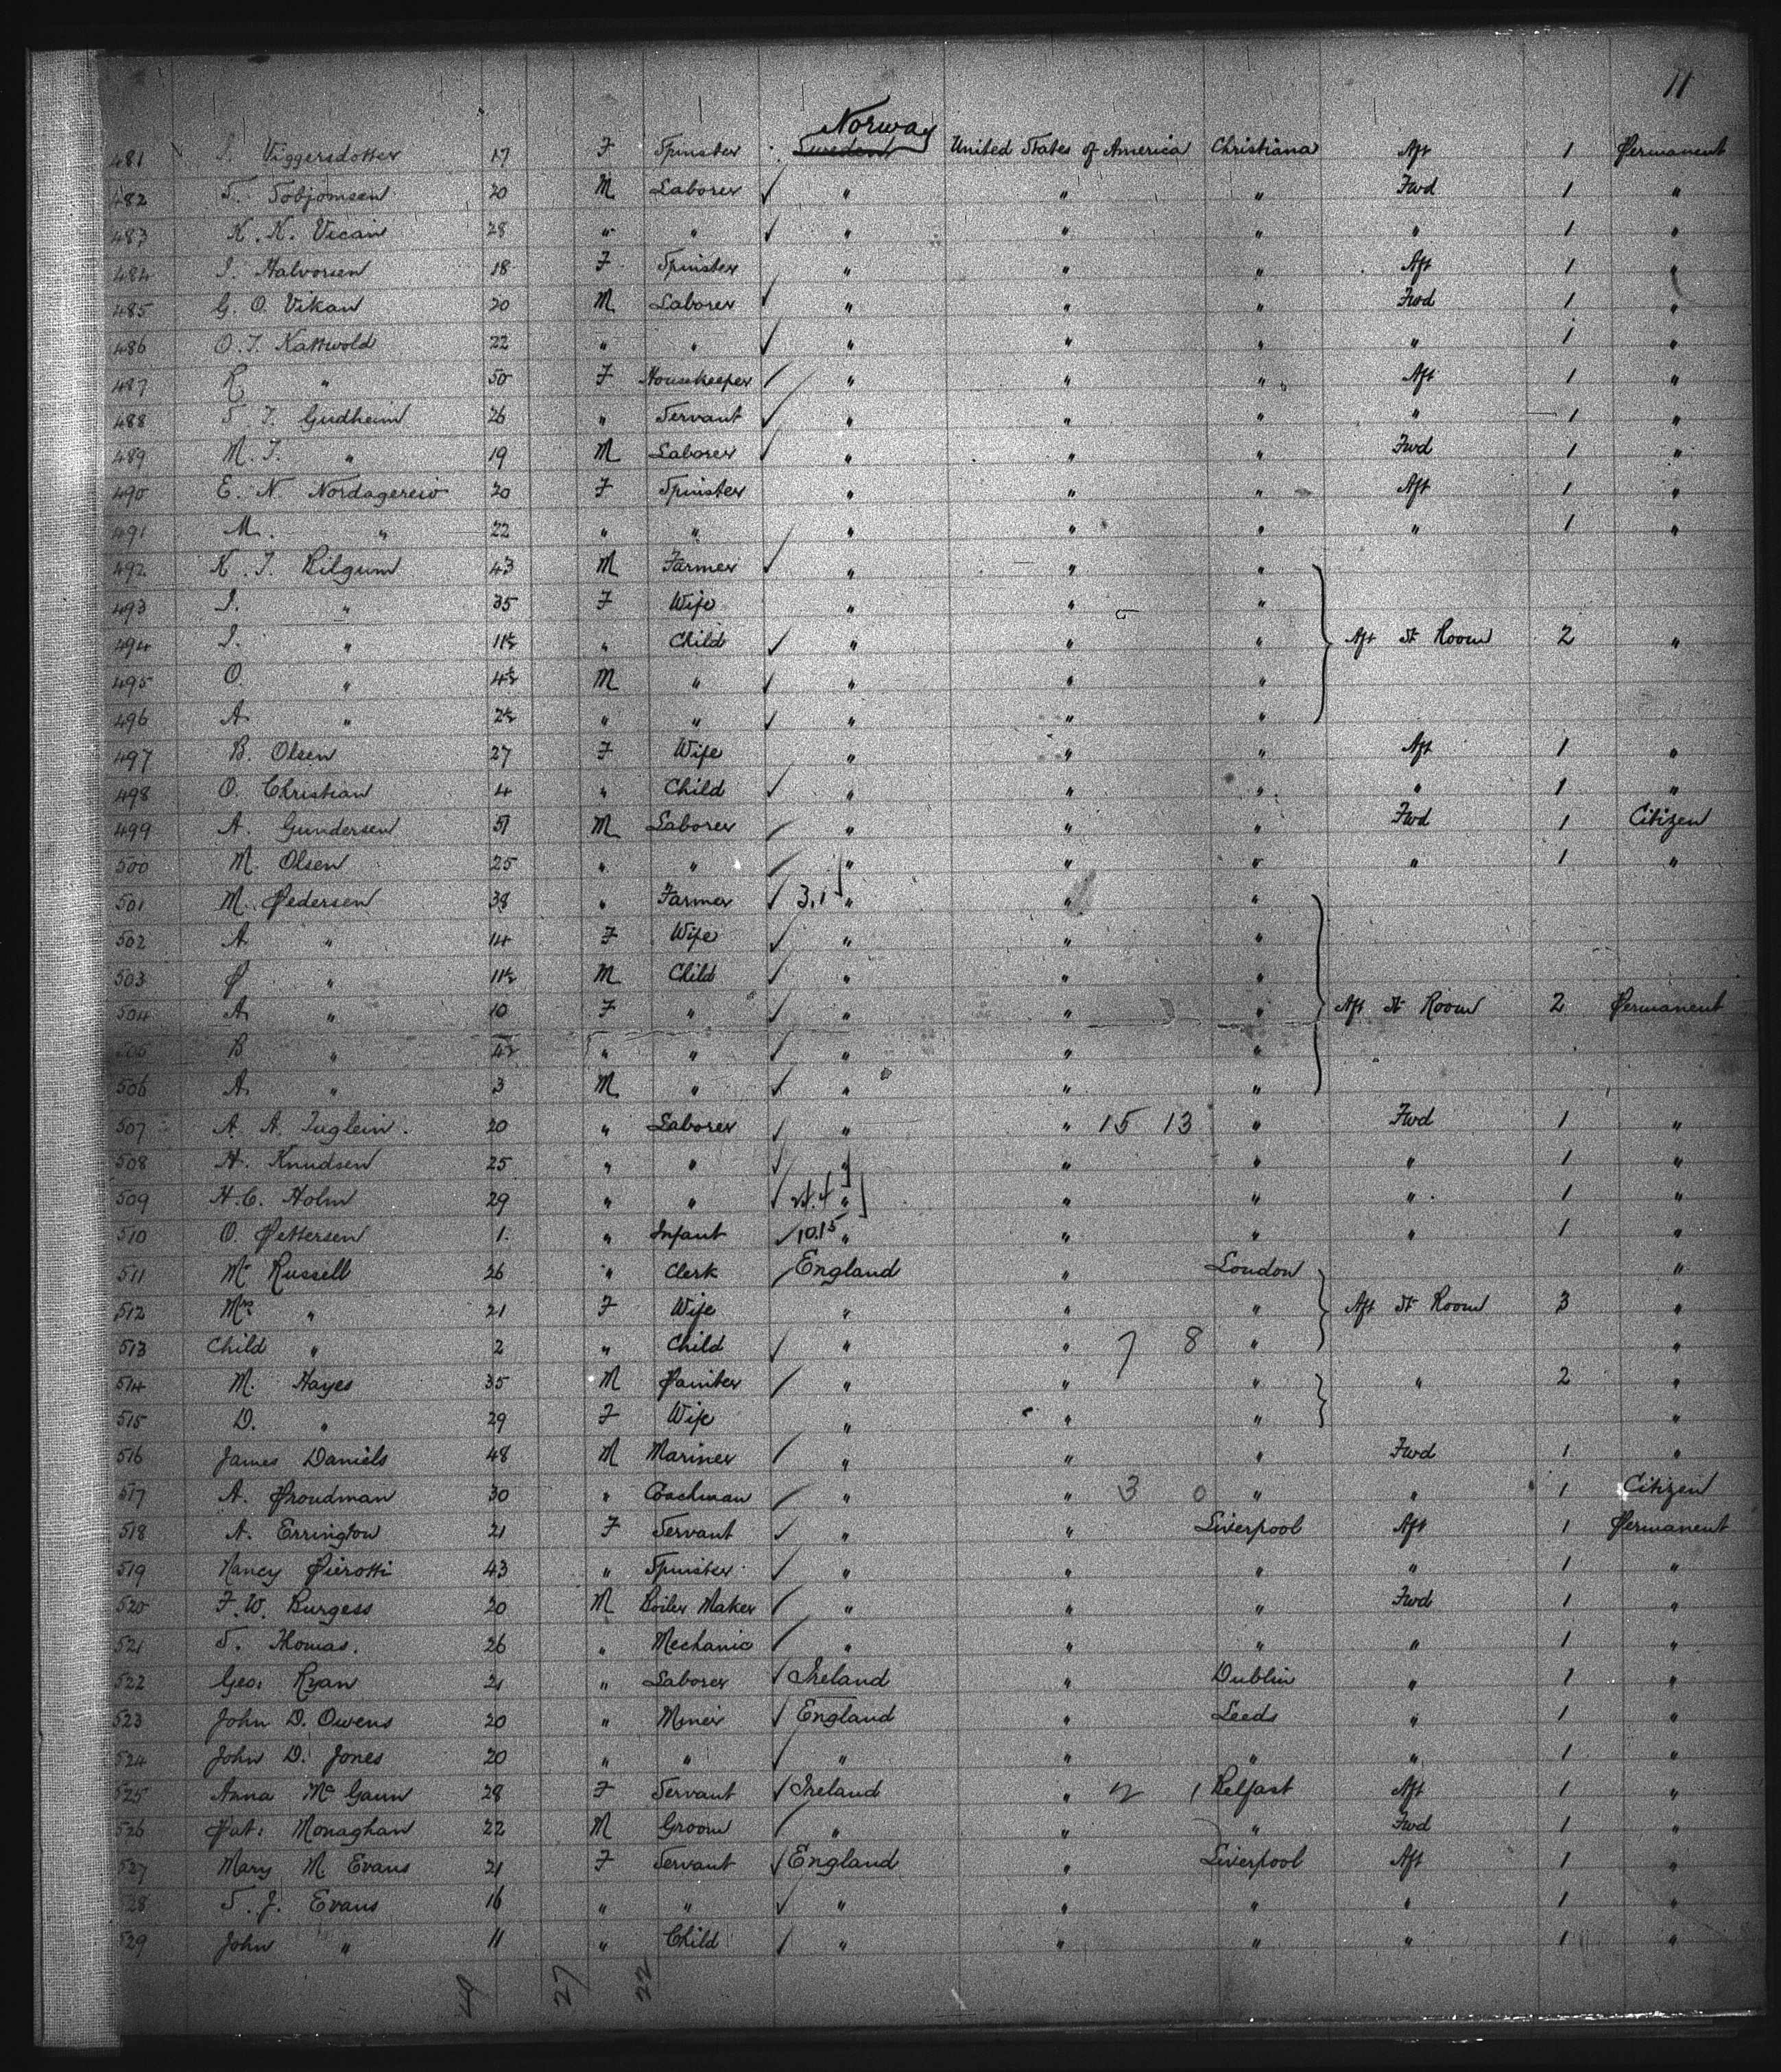 11
Norway
481 S. Viggersdotter 17 F Spinster Sweden United States of America Christiana Aft 1 Permanent
482 T. Tobjornsen 20 M Laborer ✓ " " " Fwd 1 "
483 K. K. Vicain 28 " " ✓ " " " " 1 "
484 I. Halvorsen 18 F Spinster " " " Aft 1 "
485 G. O. Vikan 20 M Laborer ✓ " " " Fwd 1 "
486 O. T. Kattwold 22 " " ✓ " " " " 1 "
487 R " 50 F Housekeeper ✓ " " " Aft 1 "
488 T. T. Gudheim 26 " Servant ✓ " " " " 1 "
489 M. T. " 19 M Laborer ✓ " " " Fwd 1 "
490 E. N. Nordagereio 20 F Spinster " " " Aft 1 "
491 M. " 22 " " ✓ " " " " 1 "
492 K. T. Bilgum 43 M Farmer ✓ " " "
493 I. " 35 F Wife " " "
494 I. " 11½ " Child ✓ " " " Aft St Room 2 "
495 O. " 4½ M " ✓ " " "
496 A. " 2½ " " ✓ " " "
497 B. Olsen 27 F Wife " " " Aft 1 "
498 O. Christian 4 " Child ✓ " " " " 1 "
499 A. Gundersen 51 M Laborer ✓ " " " Fwd 1 Citizen
500 M. Olsen 25 " " ✓ " " " " 1 "
501 M. Pedersen 38 " Farmer ✓ 3.1 " " "
502 A " 14 F Wife ✓ " " "
503 P " 11½ M Child ✓ " " "
504 A. " 10 F " ✓ " " " Aft St Room 2 Permanent
505 B " 4½ " " ✓ " " "
506 A. " 3 M " ✓ " " "
507 A. A. Tuglein. 20 " Laborer ✓ " " 15 13 " Fwd 1 "
508 H. Knudsen 25 " " ✓ " " " " 1 "
509 H. C. Holm 29 " " ✓ " " " " 1 "
510 O. Pettersen 1. " Infant ✓ 10.15 " " " " 1 "
511 Mr Russell 26 " Clerk ✓ England " London "
512 Mrs " 21 F Wife " " " Aft St Room 3 "
513 Child " 2 " Child ✓ " " 7 8 " "
514 M. Hayes 35 M Painter ✓ " " " " 2 "
515 D. " 29 F Wife " " " "
516 James Daniels 48 M Mariner ✓ " " " Fwd 1 "
517 A. Proudman 30 " Coachman ✓ " " 3 0 " " 1 Citizen
518 A. Errington 21 F Servant ✓ " " Liverpool Aft 1 Permanent
519 Nancy Pierotti 43 " Spinster ✓ " " " " 1 "
520 F. W. Burgess 20 M Boiler Maker ✓ " " " Fwd 1 "
521 T. Thomas. 26 " Mechanic ✓ " " " " 1 "
522 Geo: Ryan 21 " Laborer ✓ Ireland " Dublin " 1 "
523 John D. Owens 20 " Miner ✓ England " Leeds " 1 "
524 John D. Jones 20 " " ✓ " " " " 1 "
525 Anna Mc Gann 28 F Servant ✓ Ireland " 2 1 Belfast Aft 1 "
526 Pat: Monaghan 22 M Groom ✓ " " " Fwd 1 "
527 Mary M. Evans 21 F Servant ✓ England " Liverpool Aft 1 "
528 T. J. Evans 16 " " ✓ " " " " 1 "
529 John " 11 " Child ✓ " " " " 1 "
49 27 22